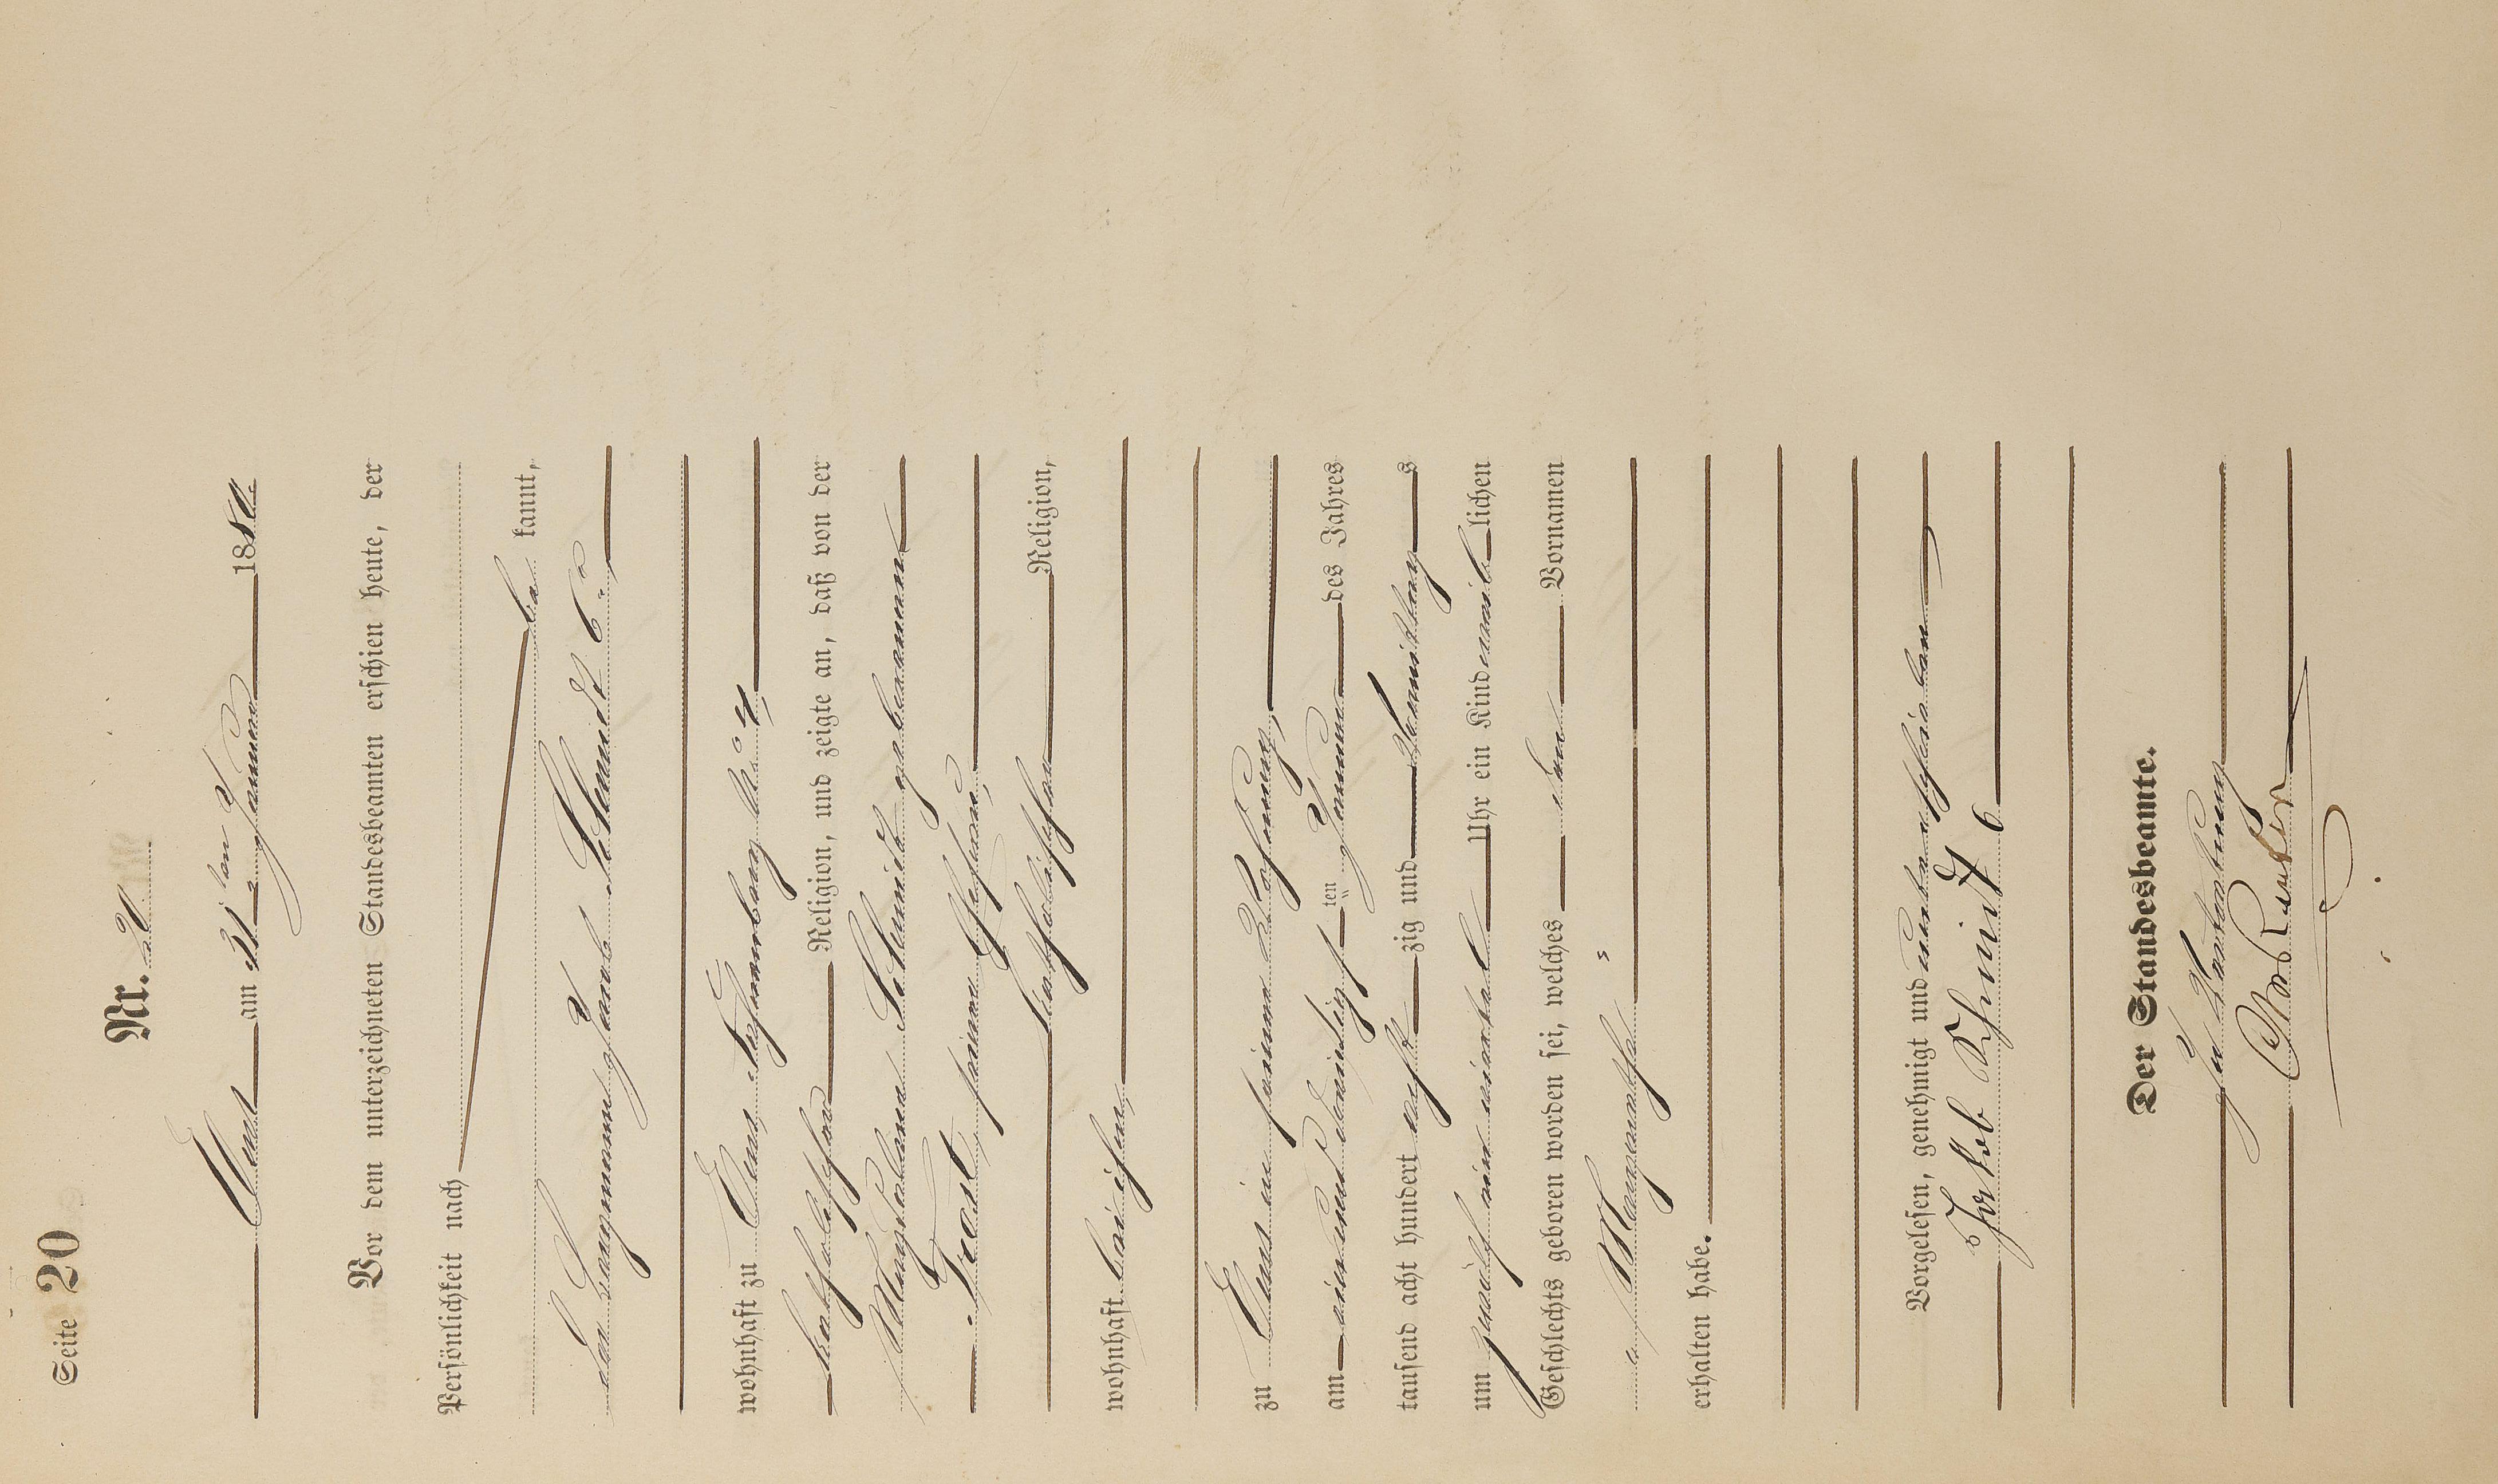 Seite 20
Nr. 20
Ems am 31ten Januar 1880.
Vor dem unterzeichneten Standesbeamten erschien heute, der
Persönlichkeit nach
be kannt,
der Jacob Schmidt 6r
wohnhaft zu Ems, No 4,
katholischer Religion, und zeigte an, daß von der
Magdalena Schmidt geborenen
Trost, seiner Ehefrau,
katholischer Religion,
wohnhaft bei ihm,
zu Ems in seiner Wohnung,
am ein und dreißigsten Januar des Jahres
tausend acht hundert acht zig und Vormittags
um Uhr ein Kind weiblichen
Geschlechts geboren worden sei, welches den Vornamen
Margaretha
erhalten habe.
Vorgelesen, genehmigt und unterschrieben
Jakob Schmidt 6
Der Standesbeamte.
In Vertretung